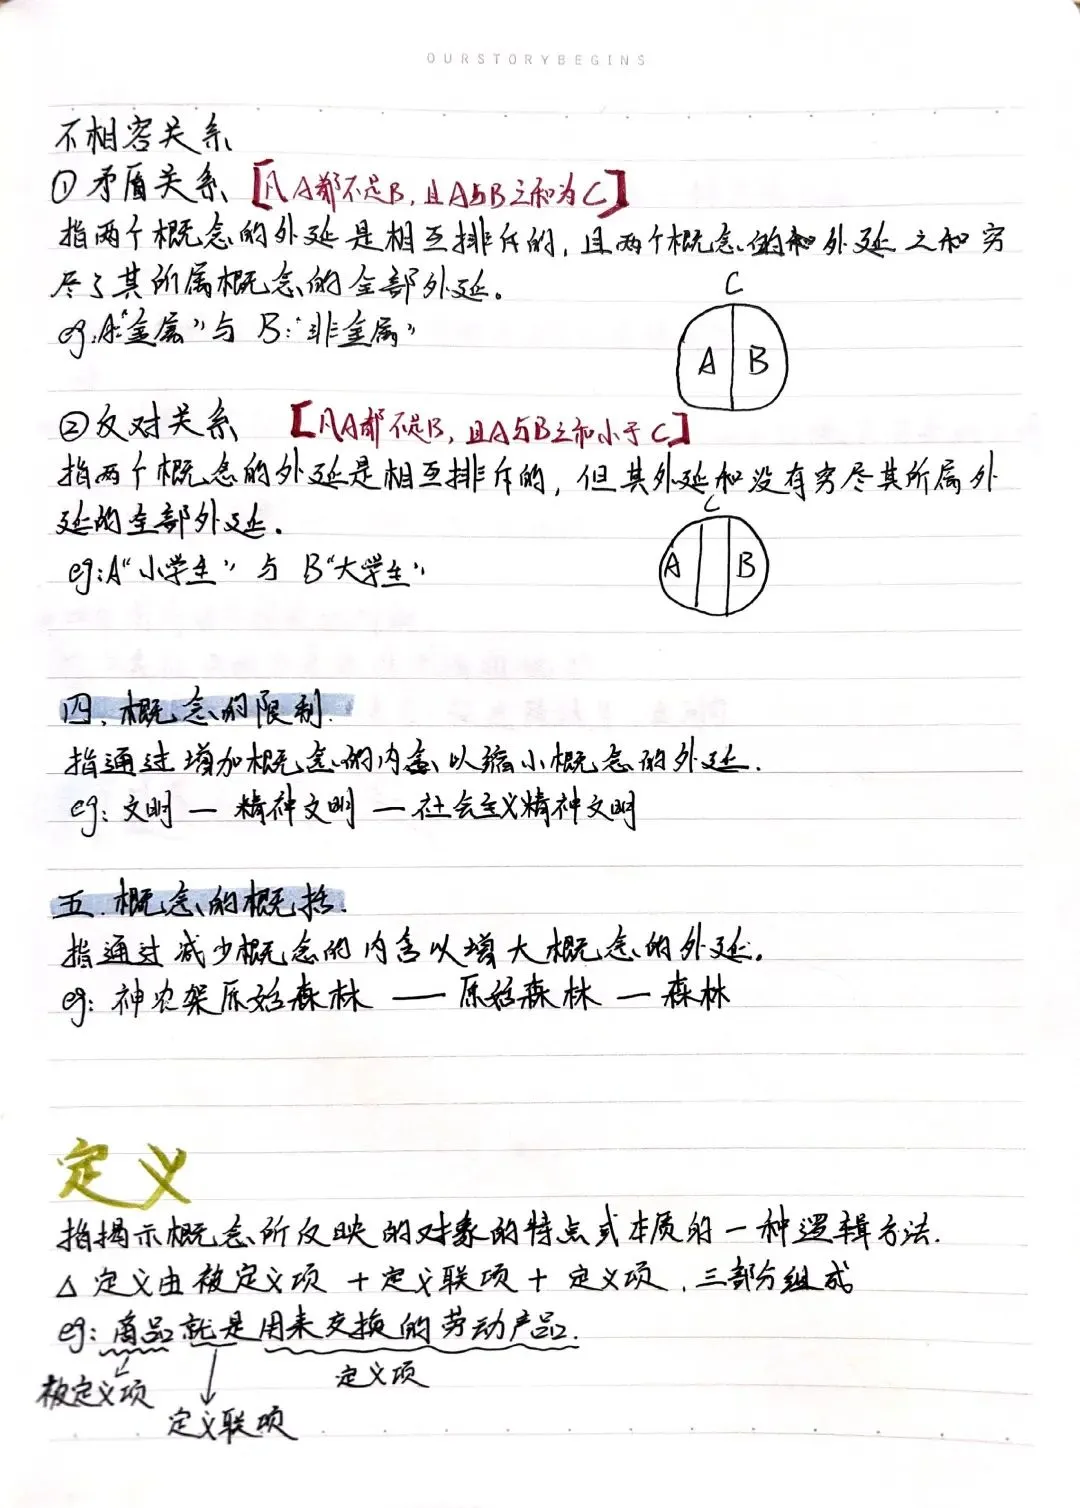 OURSTORYBEGINS
不相容关系
① 矛盾关系 【凡A都不是B,且A与B之和为C】
指两个概念的外延是相互排斥的,且两个概念的和外延之和穷
尽了其所属概念的全部外延。
C
eg:A:“金属”与 B:“非金属”
A B
②反对关系 【凡A都不是B,且A与B之和小于C】
指两个概念的外延是相互排斥的,但其外延和没有穷尽其所属外
延的全部外延.
C
eg:A“小学生”与 B“大学生”
A B
四.概念的限制.
指通过增加概念的内含以缩小概念的外延.
eg: 文明 — 精神文明 — 社会主义精神文明
五.概念的概括.
指通过减少概念的内含以增大概念的外延。
eg: 神农架原始森林 — 原始森林 — 森林
定义
指揭示概念所反映的对象的特点或本质的一种逻辑方法.
△ 定义由被定义项 + 定义联项 + 定义项.三部分组成
eg: 商品就是用来交换的劳动产品.
被定义项 定义联项 定义项